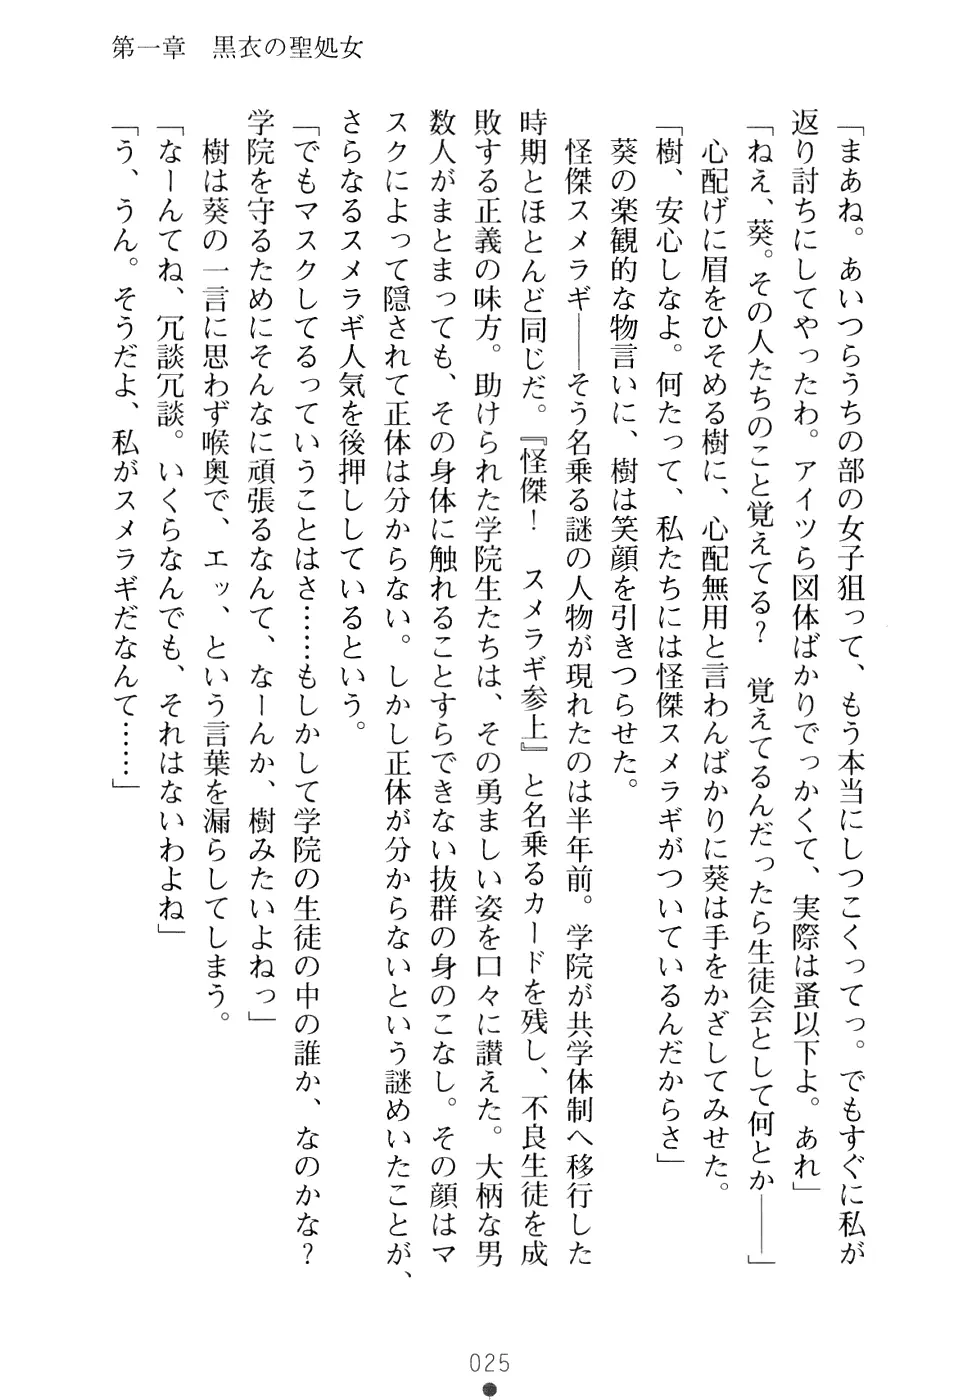 第一章　黒衣の聖処女
「まあね。あいつらうちの部の女子狙って、もう本当にしつこくってっ。でもすぐに私が
返り討ちにしてやったわ。アイツら図体ばかりでっかくて、実際は蚤以下よ。あれ」
「ねえ、葵。その人たちのこと覚えてる？　覚えてるんだったら生徒会として何とか――」
　心配げに眉をひそめる樹に、心配無用と言わんばかりに葵は手をかざしてみせた。
「樹、安心しなよ。何たって、私たちには怪傑スメラギがついているんだからさ」
　葵の楽観的な物言いに、樹は笑顔を引きつらせた。
　怪傑スメラギ――そう名乗る謎の人物が現れたのは半年前。学院が共学体制へ移行した
時期とほとんど同じだ。『怪傑！　スメラギ参上』と名乗るカードを残し、不良生徒を成
敗する正義の味方。助けられた学院生たちは、その勇ましい姿を口々に讃えた。大柄な男
数人がまとまっても、その身体に触れることすらできない抜群の身のこなし。その顔はマ
スクによって隠されて正体は分からない。しかし正体が分からないという謎めいたことが、
さらなるスメラギ人気を後押ししているという。
「でもマスクしてるっていうことはさ……もしかして学院の生徒の中の誰か、なのかな？
学院を守るためにそんなに頑張るなんて、なーんか、樹みたいよねっ」
　樹は葵の一言に思わず喉奥で、エッ、という言葉を漏らしてしまう。
「なーんてね、冗談冗談。いくらなんでも、それはないわよね」
「う、うん。そうだよ、私がスメラギだなんて……」
025